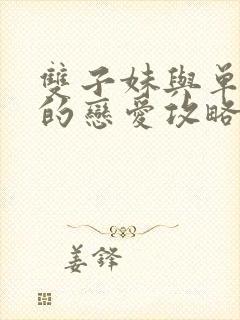 雙子妹與單
的戀愛攻略
姜鋒